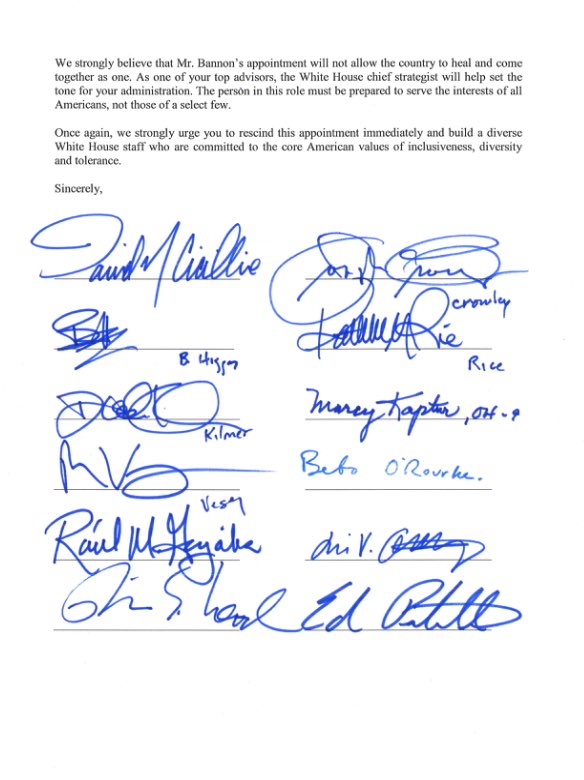 We strongly believe that Mr. Bannon's appointment will not allow the country to heal and come
together as one. As one of your top advisors, the White House chief strategist will help set the
tone for your administration. The person in this role must be prepared to serve the interests of all
Americans, not those of a select few.
Once again, we strongly urge you to rescind this appointment immediately and build a diverse
White House staff who are committed to the core American values of inclusiveness, diversity
and tolerance.
Sincerely,
David N Cicilline
Crowley
B Higgins
Rice
Kilmer
Marcy Kaptur, OH-9
Beto O'Rourke.
Veasey
Raúl M. Grijalva
Ed